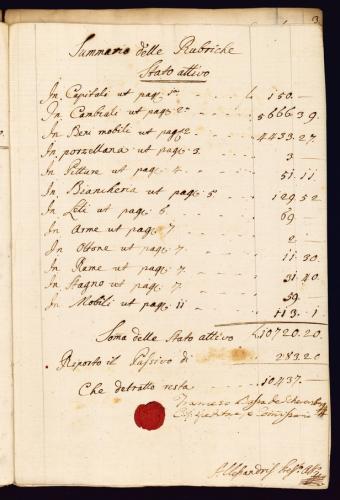 3
Summario delle Rubriche
Stato attivo
In Capitali ut pag. 1 L 150.—
In Cambiali ut pag. 2 5666.39.
In Beni mobili ut pag. 2 4433.27.
In porzellana ut pag. 3. 3
In Pitture ut pag. 4. 51.11.
In Biancheria ut pag. 5 129.52
In Leti ut pag. 6. 69
In Arme ut pag. 7 2
In Ottone ut pag. 7. 11.30.
In Rame ut pag. 7. 31.40.
In Stagno ut pag. 7. 59
In Mobili ut pag. 11 113. 1
Soma dello Stato attivo L 10720.20.
Riporto il Passivo di 283.20
Che detratto resta 10437.—
Francesco